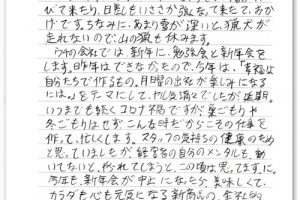 びて来たり、目黒もいささか飽きて来た、おか
げです。ちなみに、あまり雪が深いと、猟犬が
走れないので山の猟も休みます。
ウチの会社では、新年に、勉強会と新年会を
します。昨年はできなかので、今年は、「幸福は
自分たちで作るもの。月曜の出社が楽しみになる
には。」をテーマにして、やる気満々でしたが延期。
いつまでも続くコロナ禍ですが巣ごもりや
冬ごもりはせずこんな時だからこその仕事を
作って、忙しくします。スタッフの気持ちの健康のため
と思っていましたが経営者の自分のメンタルも、動
いてないと、やられてしまうと、この頃は思ってます。に
今年も、新年会が中止になったら、美味しくて、
カラダも心も元気になる新商品の、全社的